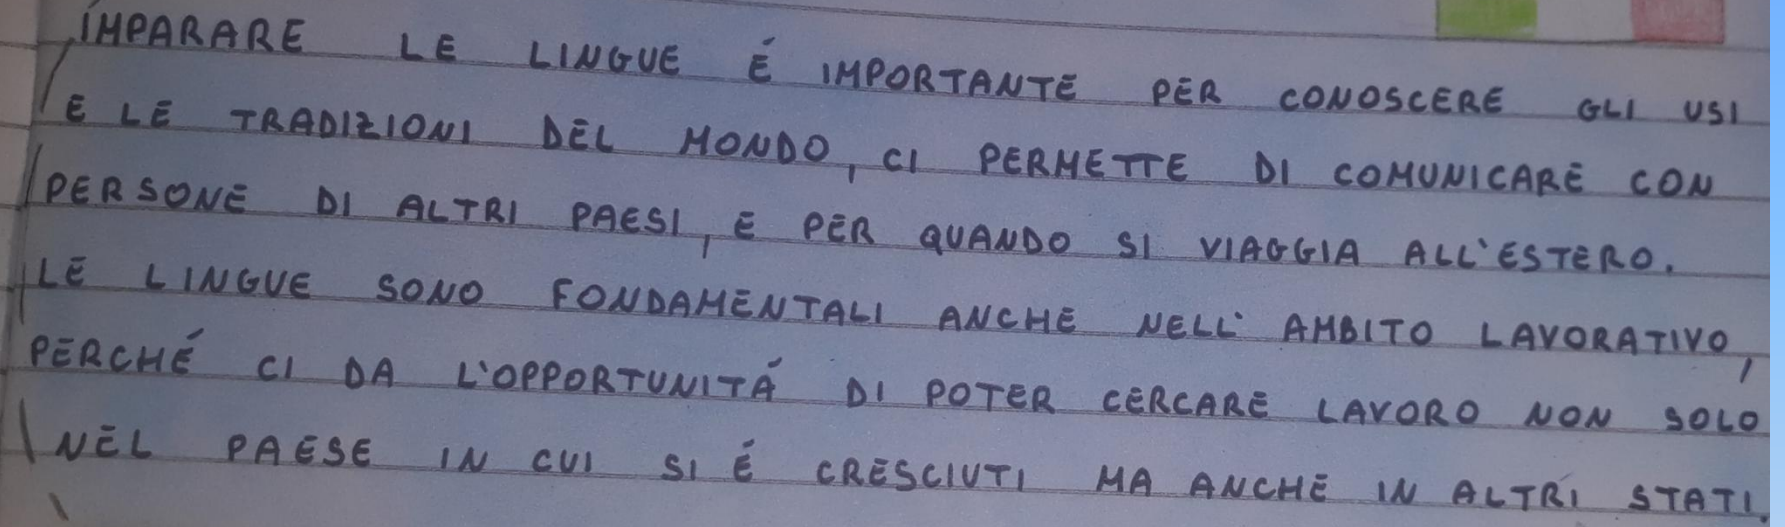 IMPARARE LE LINGUE É IMPORTANTE PER CONOSCERE GLI USI
E LE TRADIZIONI DEL MONDO, CI PERMETTE DI COMUNICARE CON
PERSONE DI ALTRI PAESI, E PER QUANDO SI VIAGGIA ALL'ESTERO.
LE LINGUE SONO FONDAMENTALI ANCHE NELL' AMBITO LAVORATIVO,
PERCHÉ CI DA L'OPPORTUNITÁ DI POTER CERCARE LAVORO NON SOLO
NEL PAESE IN CUI SI É CRESCIUTI MA ANCHE IN ALTRI STATI.